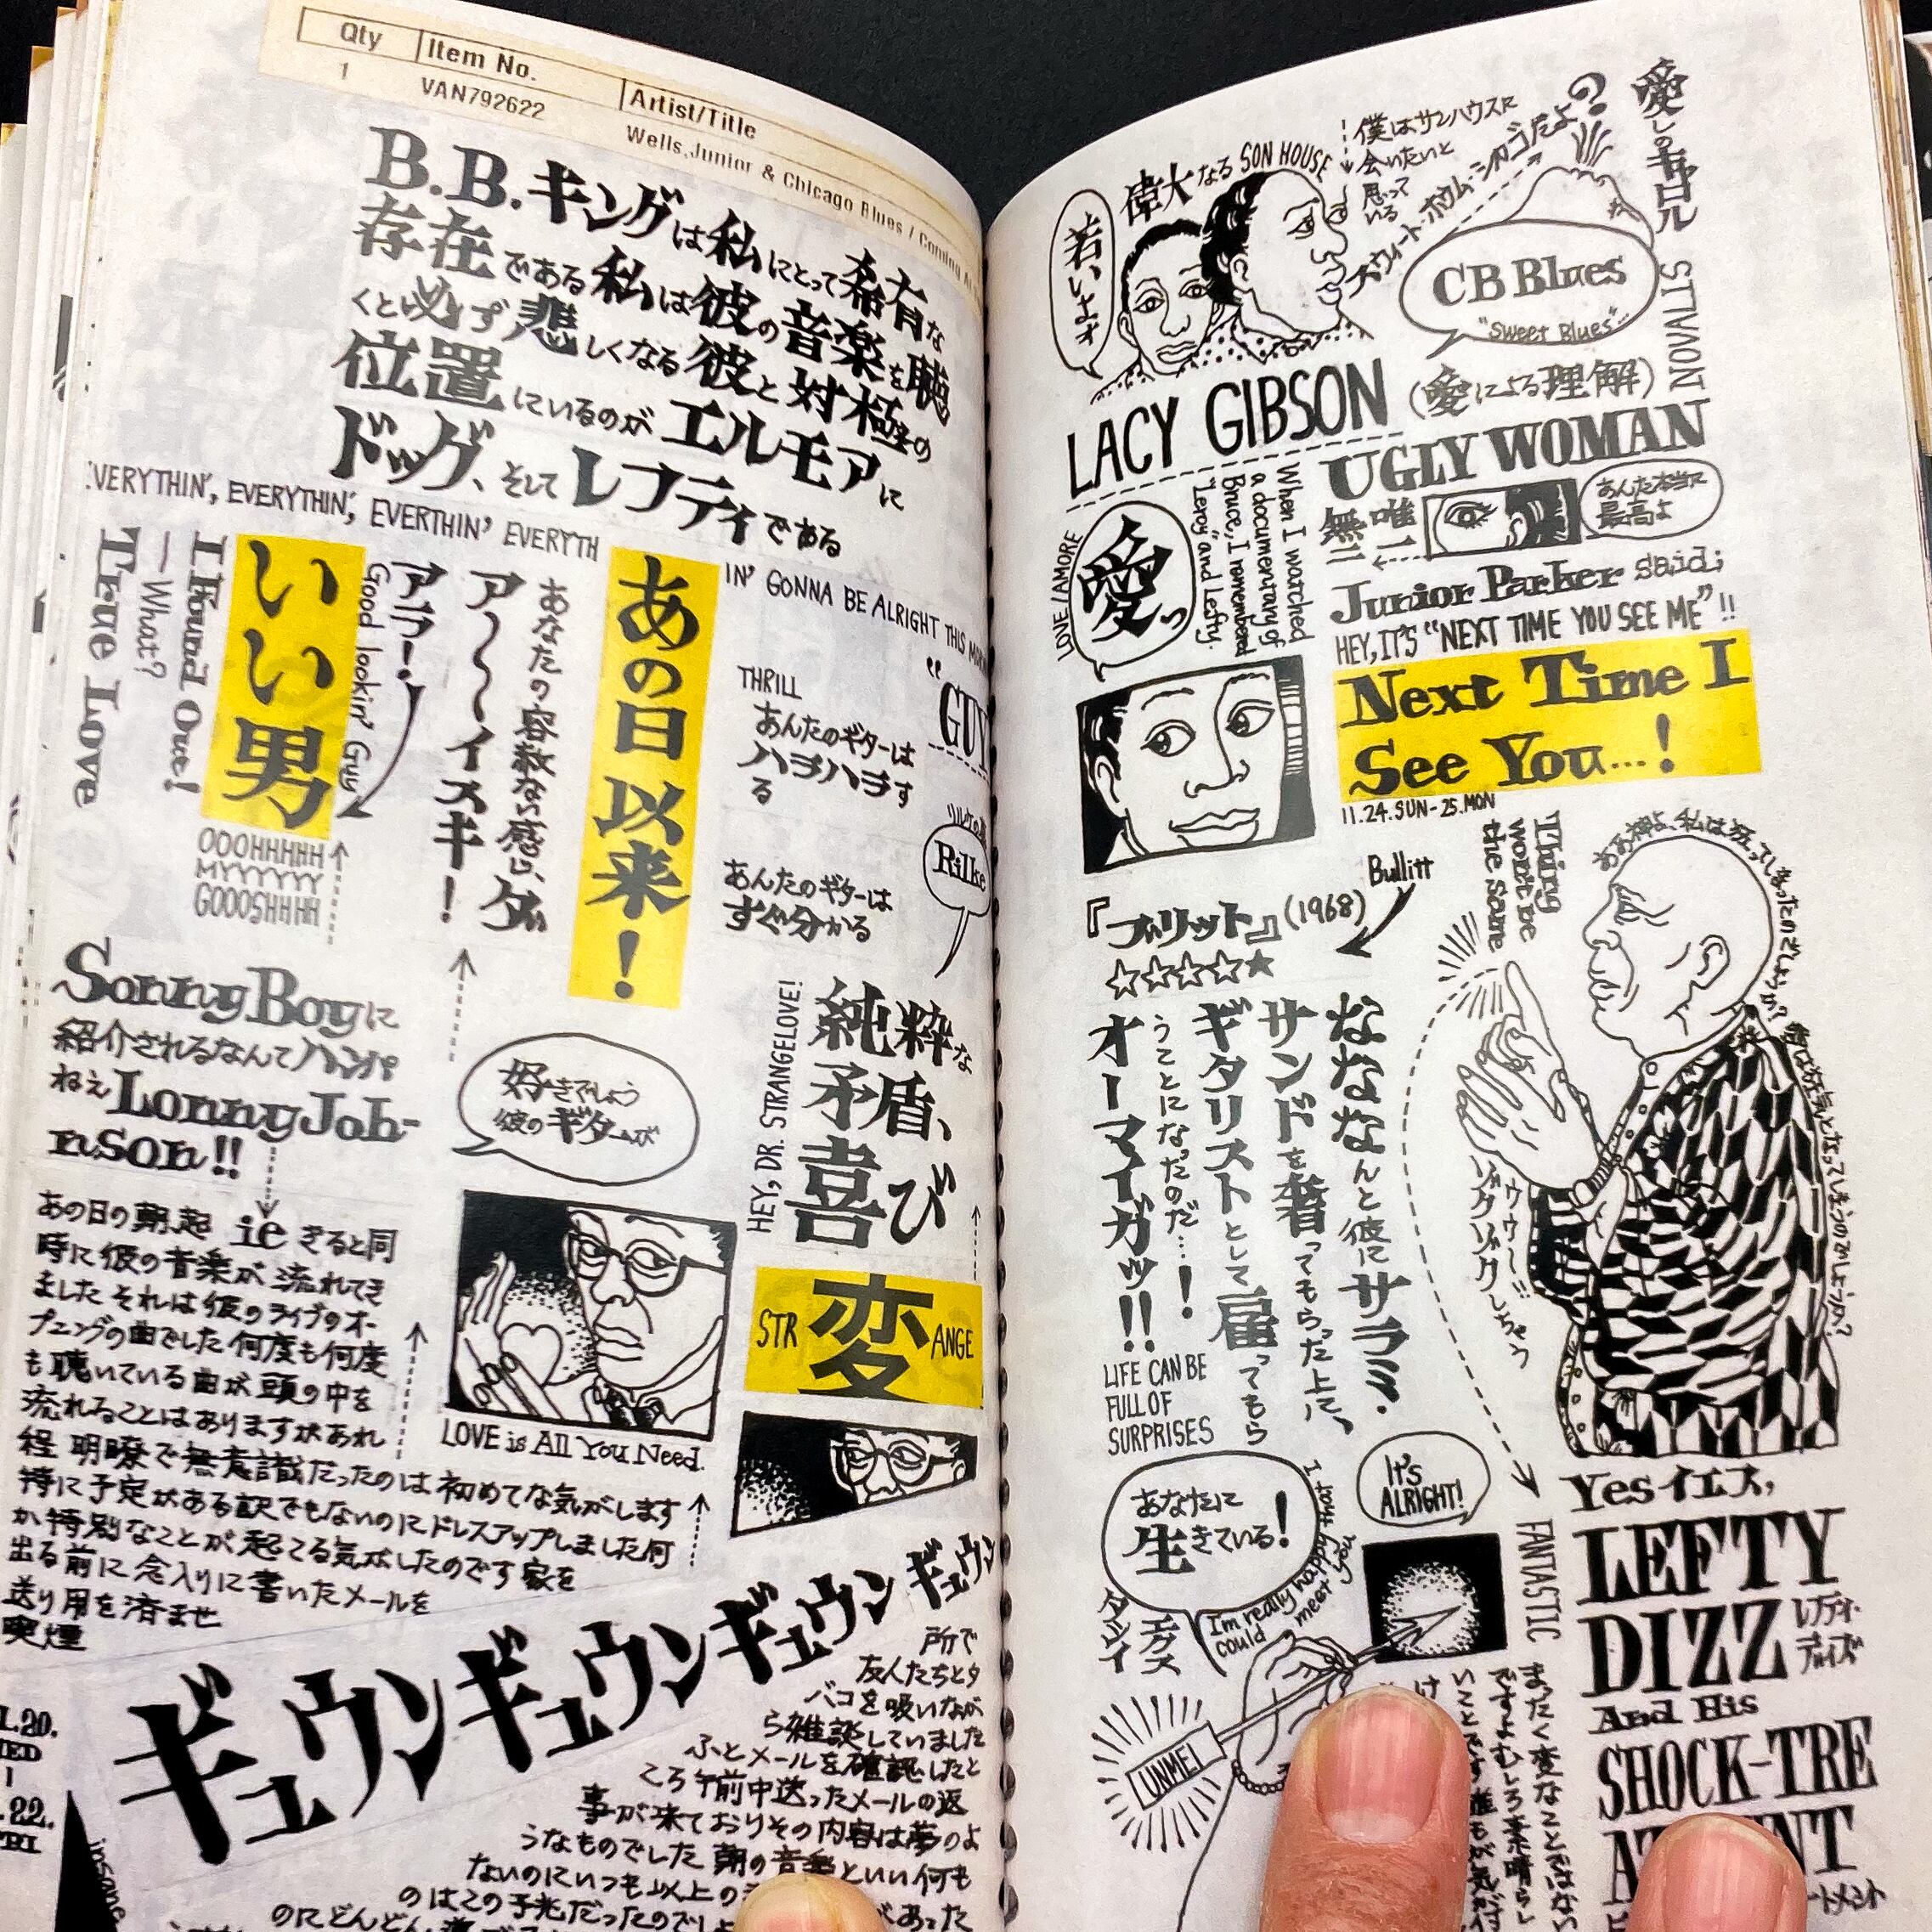 Qty Item No. Artist/Title
1 VAN792622 Wells,Junior & Chicago Blues / Coming At
B.B.キングは私にとって希有な
存在である私は彼の音楽を聴
くと必ず悲しくなる彼と対極の
位置しているのがエルモアに
ドッグ、そしてレフティである
EVERYTHIN', EVERYTHIN', EVERTHIN' EVERYTH
IN' GONNA BE ALRIGHT THIS
あの日以来!
あなたの容赦ない感じ、ダ
ア〜〜イスキ!
アラ!
Good lookin' Guy
いい男
OOOHHHHH
MYYYYYY
GOOOSHHHH
I Found Out!
—What?
True Love
"GUY
THRILL
あんたのギターは
ハラハラす
る
あんたのギターは
すぐ分かる
Rilke
Sonny Boyに
紹介されるなんてハンパ
ねぇLonny Joh-
nson!!
好きでしょう
彼のギターが
HEY, DR. STRANGELOVE!
純粋な
矛盾、
喜び
STR変ANGE
LOVE is All You Need.
あの日の朝起 ie きると同
時に彼の音楽が流れてき
ました それは彼のライブのオー
プニングの曲でした 何度も何度
も聴いている曲が頭の中を
流れることはありますがあれ
程 明瞭で無意識だったのは初めてな気がします
特に予定がある訳でもないのにドレスアップしました何
か特別なことが起こてる気がしたのです 家を
出る前に念入りに書いたメールを
送り用を済ませ
喫煙
ギュウンギュウンギュウンギュウン
所で
友人たちとタ
バコを吸いなが
ら雑談していました
ふとメールを確認したと
ころ午前中送ったメールの返
事が来ておりその内容は夢のよ
うなものでした 朝の音楽といい何も
ないのにいつも以上の
のはこの予兆だったのでしょ
があった
insane
偉大なる SON HOUSE
若いしょオ
僕はサンハウスに
会いたいと
思って
いる
スウィート・ホウム・シカゴだよ?
愛しのキャロル
CB Blues
"Sweet Blues"...
STLVANOITS
LACY GIBSON
(愛による理解)
UGLY WOMAN
唯一
無二
あんた本当に
最高よ
When I watched
a documentary of
Bruce, I remembered
"Leroy" and Lefty.
愛っ
LOVE L'AMORE
Junior Parker said;
HEY, IT'S "NEXT TIME YOU SEE ME"!!
Next Time I
See You...!
11.24.SUN-25.MON
Bullitt
『ブリット』(1968)
☆☆☆☆★
Thing
won't be
the same
おお神よ、私は狂ってしまったのでしょうか?
ななななんと彼にサラミ・
サンドを奢ってもらった上に、
ギタリストとして雇ってもら
うことになったのだ…!
オーマイガッ!!
LIFE CAN BE
FULL OF
SURPRISES
ウゥ〜!!
ゾクゾクしちゃう
It's
ALRIGHT!
あなたに
生きている!
I'm really happy I could meet you
エグス
タシイ
UNMEI
FANTASTIC
Yes イエス,
LEFTY
DIZZ
レフティ・
ディズ
And His
SHOCK-TRE
まったく変なことではない
ですよむしろ素晴らし
いことです 誰もが気